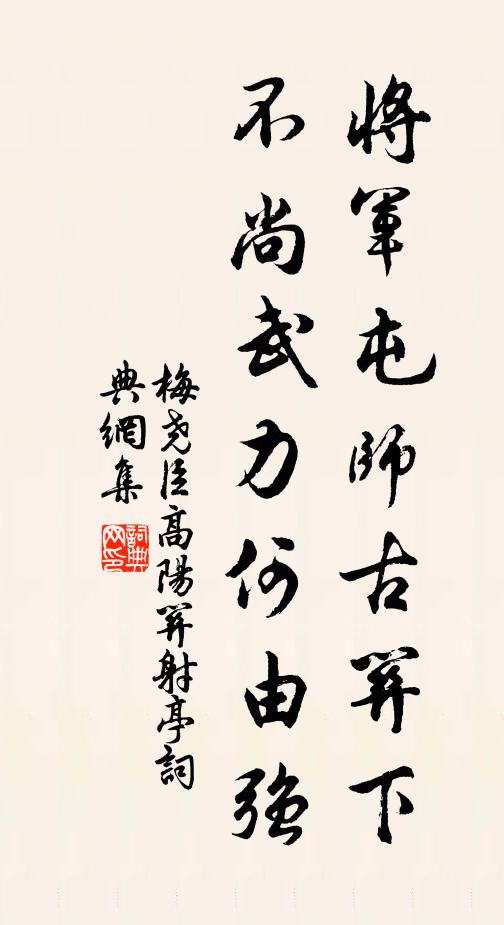 將軍屯師古關下
不尚武力何由強
梅尧臣高陽關射亭詞
典網集
詞典
网印